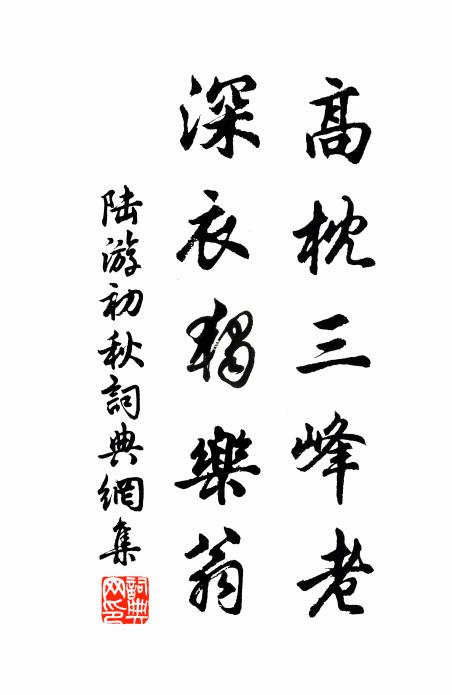 高枕三峰老
深衣獨樂翁
陆游初秋詞典網集
詞典網印